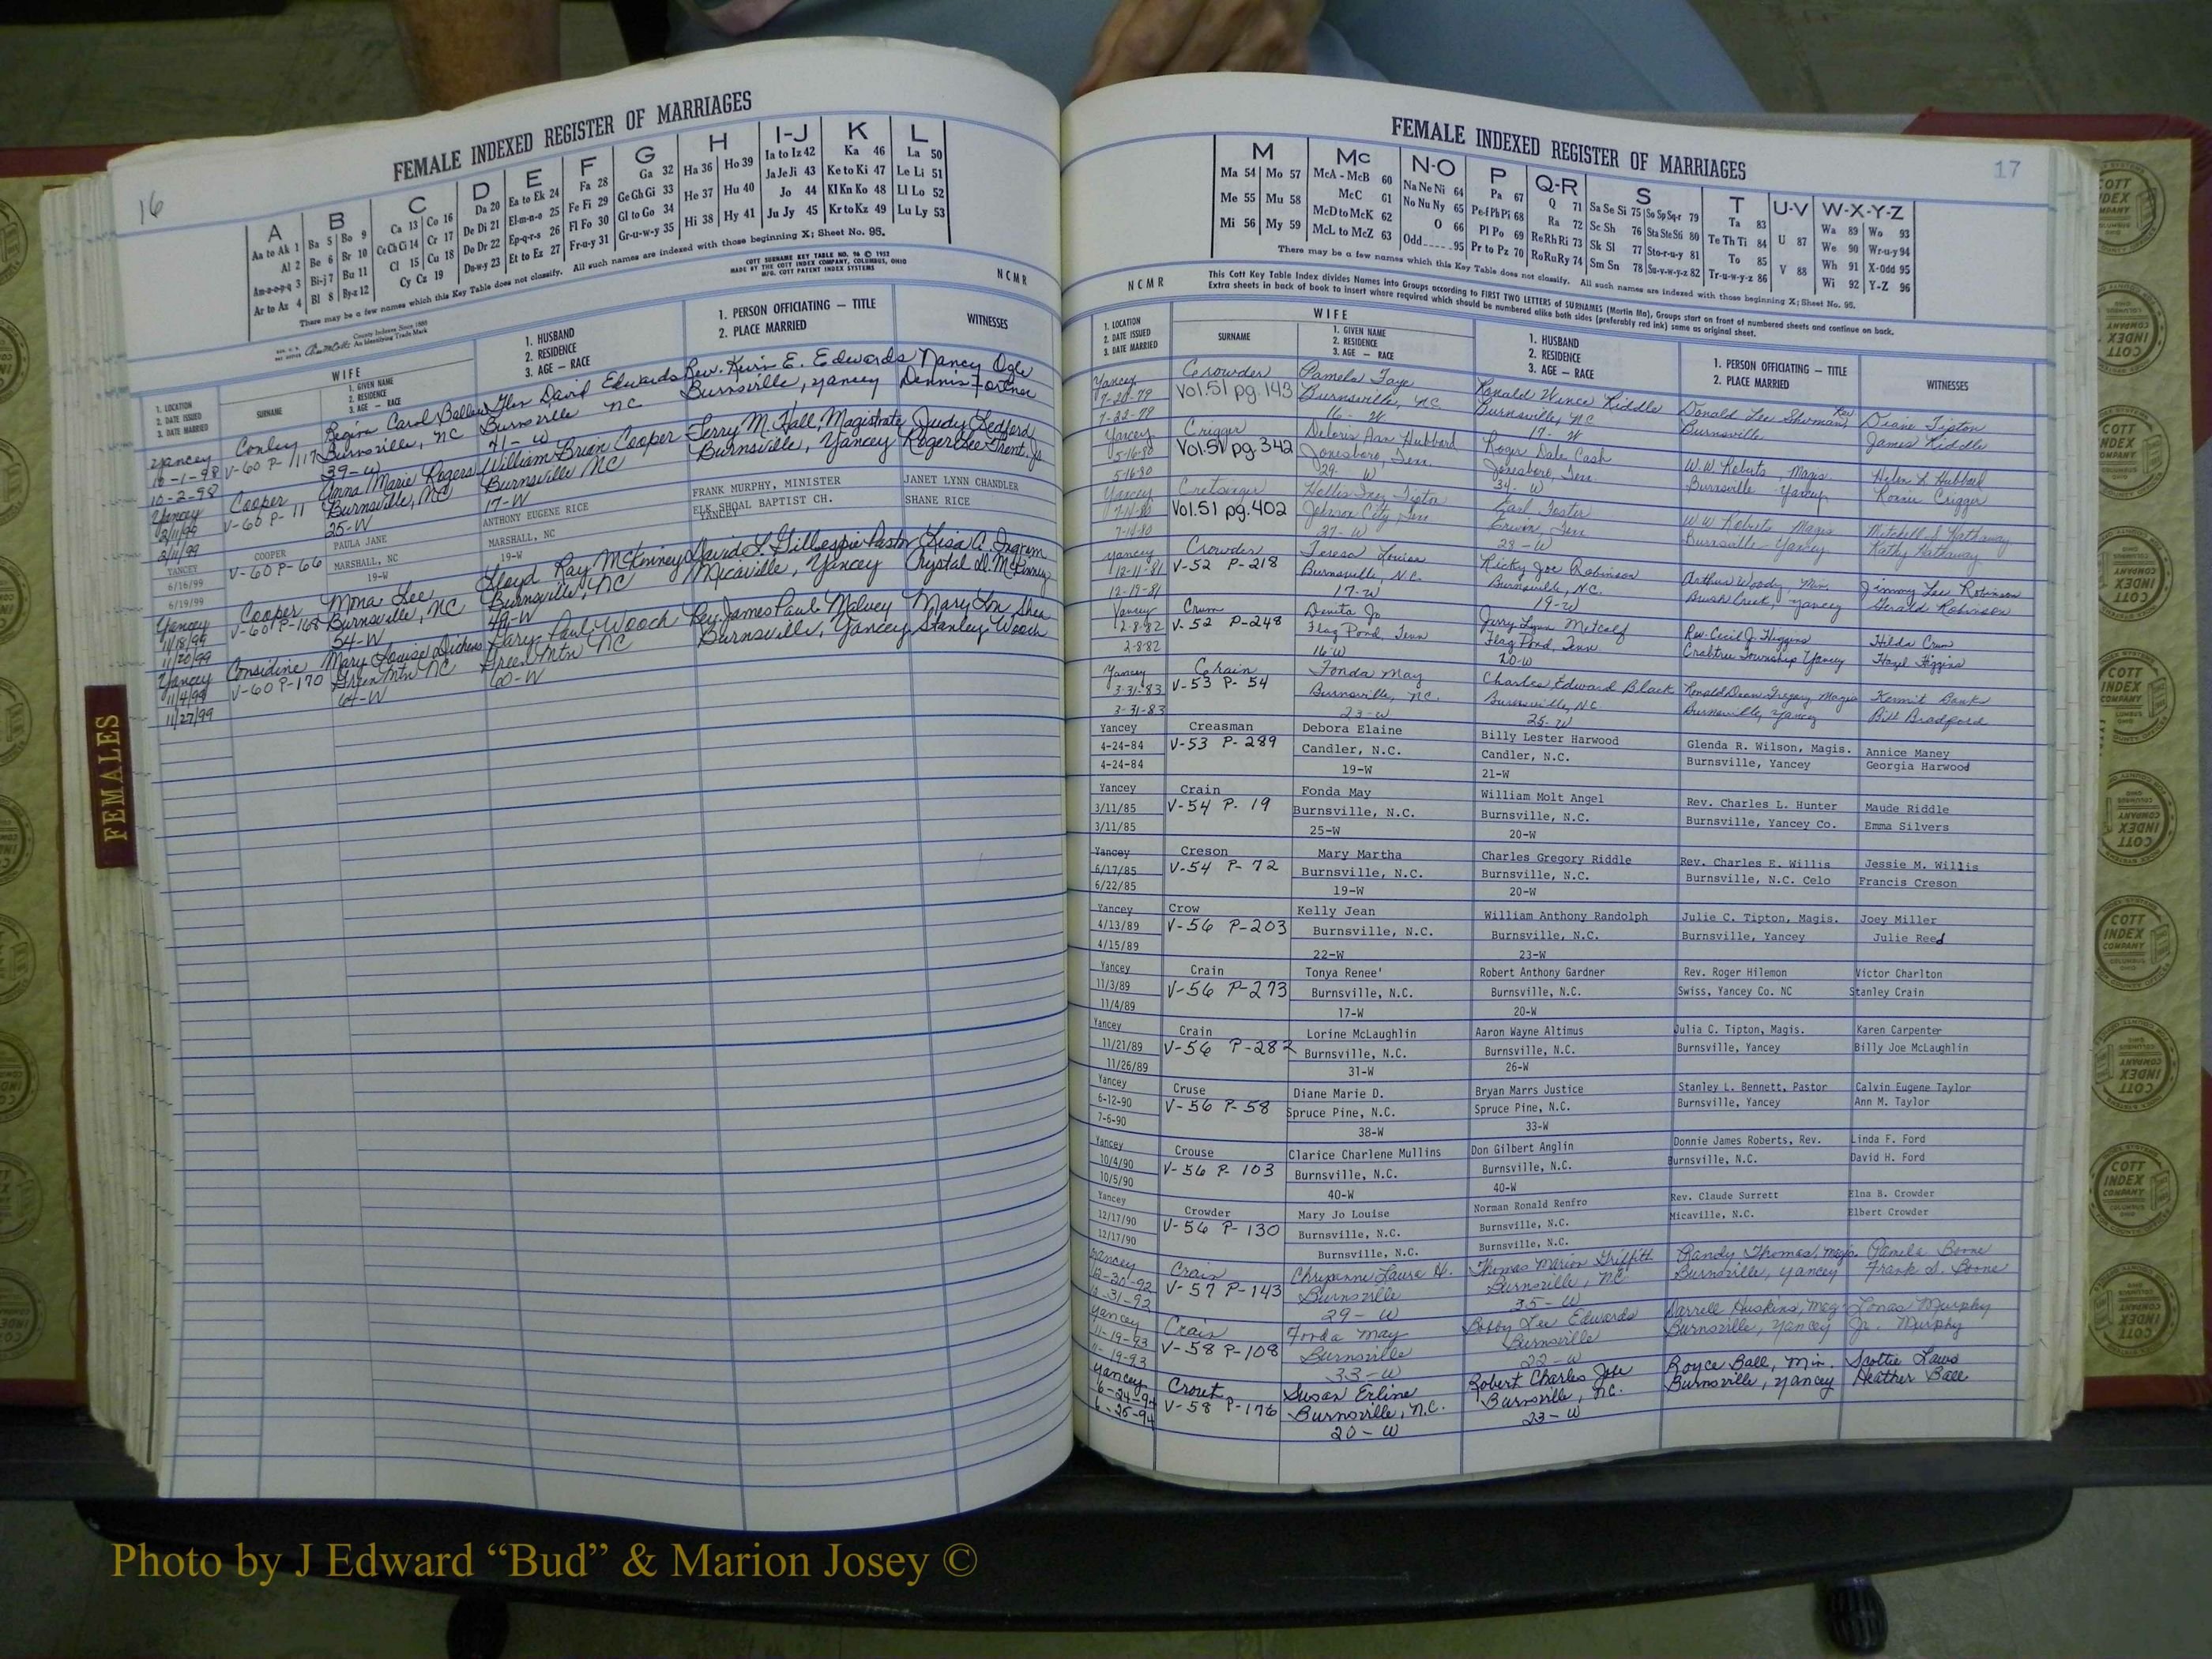 16
FEMALE INDEXED REGISTER OF MARRIAGES
A B C D E F G H I-J K L
Aa to Ak 1 Ba 5 Bo 9 Ca 13 Co 16 Da 20 Ea to Ek 24 Fa 28 Ga 32 Ha 36 Ho 39 Ia to Iz 42 Ka 46 La 50
Al 2 Be 6 Br 10 Ce Ch Ci 14 Cr 17 De Di 21 El-m-n-o 25 Fe Fi 29 Ge Gh Gi 33 He 37 Hu 40 Ja Je Ji 43 Ke to Ki 47 Le Li 51
Am-n-o-p-q 3 Bi-j 7 Bu 11 Cl 15 Cu 18 Do Dr 22 Ep-q-r-s 26 Fl Fo 30 Gl to Go 34 Hi 38 Hy 41 Jo 44 Kl Kn Ko 48 Ll Lo 52
Ar to Az 4 Bl 8 By-z 12 Cy Cz 19 Du-w-y 23 Et to Ez 27 Fr-u-y 31 Gr-u-w-y 35 Ju Jy 45 Kr to Kz 49 Lu Ly 53
There may be a few names which this Key Table does not classify. All such names are indexed with those beginning X; Sheet No. 95.
COTT SURNAME KEY TABLE NO. 96 © 1952
MADE BY THE COTT INDEX COMPANY, COLUMBUS, OHIO
MFG. COTT PATENT INDEX SYSTEMS
NCMR
County Indexes Since 1888
An Identifying Trade Mark
WIFE
1. LOCATION
2. DATE ISSUED
3. DATE MARRIED
SURNAME
1. GIVEN NAME
2. RESIDENCE
3. AGE — RACE
1. HUSBAND
2. RESIDENCE
3. AGE — RACE
1. PERSON OFFICIATING — TITLE
2. PLACE MARRIED
WITNESSES
Yancey Conley Regina Carol Ballew Glen David Edwards Rev. Kevin E. Edwards Nancy Ogle
10-1-98 V-60 P-117 Burnsville, NC Burnsville NC Burnsville, Yancey Dennis Fortner
10-2-98 39-W 41-W
Yancey Cooper Anna Marie Rogers William Brian Cooper Terry M. Hall, Magistrate Judy Ledford
2/11/99 V-60 P-11 Burnsville, NC Burnsville NC Burnsville, Yancey Roger Lee Trent, Jr
2/11/99 25-W 17-W
YANCEY COOPER PAULA JANE ANTHONY EUGENE RICE FRANK MURPHY, MINISTER JANET LYNN CHANDLER
6/16/99 V-60 P-66 MARSHALL, NC MARSHALL, NC ELK SHOAL BAPTIST CH. SHANE RICE
6/19/99 19-W 19-W YANCEY
Yancey Cooper Mona Lee Lloyd Ray McKinney David L. Gillespie Pastor Lisa A. Ingram
11/18/99 V-60 P-168 Burnsville, NC Burnsville, NC Micaville, Yancey Crystal D. McKinney
11/20/99 54-W 49-W
Yancey Considine Mary Louise Dickens Gary Paul Wooch Rev. James Paul Malvey Mary Lou Shea
11/4/99 V-60 P-170 Green Mtn NC Green Mtn NC Burnsville, Yancey Stanley Wooch
11/27/99 64-W 60-W
FEMALES
FEMALE INDEXED REGISTER OF MARRIAGES
17
M Mc N-O P Q-R S T U-V W-X-Y-Z
Ma 54 Mo 57 McA - McB 60 Na Ne Ni 64 Pa 67 Q 71 Sa Se Si 75 So Sp Sq-r 79 Ta 83 Wa 89 Wo 93
Me 55 Mu 58 McC 61 No Nu Ny 65 Pe-f Ph Pi 68 Ra 72 Sc Sh 76 Sta Ste Sti 80 Te Th Ti 84 U 87 We 90 Wr-u-y 94
Mi 56 My 59 McD to McK 62 O 66 Pl Po 69 Re Rh Ri 73 Sk Sl 77 Sto-r-u-y 81 To 85 Wh 91 X-Odd 95
McL to McZ 63 Odd 95 Pr to Pz 70 Ro Ru Ry 74 Sm Sn 78 Su-v-w-y-z 82 Tr-u-w-y-z 86 V 88 Wi 92 Y-Z 96
There may be a few names which this Key Table does not classify. All such names are indexed with those beginning X; Sheet No. 95.
NCMR
This Cott Key Table Index divides Names into Groups according to FIRST TWO LETTERS of SURNAMES (Martin Ma), Groups start on front of numbered sheets and continue on back.
Extra sheets in back of book to insert where required which should be numbered alike both sides (preferably red ink) same as original sheet.
WIFE
1. LOCATION
2. DATE ISSUED
3. DATE MARRIED
SURNAME
1. GIVEN NAME
2. RESIDENCE
3. AGE — RACE
1. HUSBAND
2. RESIDENCE
3. AGE — RACE
1. PERSON OFFICIATING — TITLE
2. PLACE MARRIED
WITNESSES
Yancey Crowder Pamela Faye Ronald Vince Riddle Donald Lee Sherman, Rev. Diane Tipton
7-20-79 Vol.51 pg.143 Burnsville, NC Burnsville, NC Burnsville James Riddle
7-22-79 16-W 17-W
Yancey Crigger Deloris Ann Hubbard Roger Dale Cash W.W. Roberts, Magis. Helen L Hubbard
5-16-80 Vol.51 pg.342 Jonesboro, Tenn. Jonesboro, Tenn Burnsville Yancey Ronnie Crigger
5-16-80 29-W 34-W
Yancey Cretsinger Hollis Inez Tipton Earl Foster W.W. Roberts Magis Mitchell S Hathaway
7-14-80 Vol.51 pg.402 Johnson City, Tenn Erwin, Tenn Burnsville-Yancey Kathy Hathaway
7-14-80 27-W 28-W
Yancey Crowder Teresa Louise Ricky Joe Robinson Arthur Woody, Min. Jimmy Lee Robinson
12-11-81 V-52 P-218 Burnsville, N.C. Burnsville, N.C. Brush Creek, Yancey Gerald Robinson
12-19-81 17-W 19-W
Yancey Crum Denita Jo Jerry Lynn Metcalf Rev. Cecil J. Higgins Hilda Crum
2-8-82 V-52 P-248 Flag Pond, Tenn Flag Pond, Tenn. Crabtree Township Yancey Hazel Higgins
2-8-82 16-W 20-W
Yancey Crain Fonda May Charles Edward Black Ronald Dean Gregory Magis Kermit Banks
3-31-83 V-53 P-54 Burnsville, N.C. Burnsville, N.C. Burnsville, Yancey Bill Bradford
3-31-83 23-W 25-W
Yancey Creasman Debora Elaine Billy Lester Harwood Glenda R. Wilson, Magis. Annice Maney
4-24-84 V-53 P-289 Candler, N.C. Candler, N.C. Burnsville, Yancey Georgia Harwood
4-24-84 19-W 21-W
Yancey Crain Fonda May William Molt Angel Rev. Charles L. Hunter Maude Riddle
3/11/85 V-54 P-19 Burnsville, N.C. Burnsville, N.C. Burnsville, Yancey Co. Emma Silvers
3/11/85 25-W 20-W
Yancey Creson Mary Martha Charles Gregory Riddle Rev. Charles E. Willis Jessie M. Willis
6/17/85 V-54 P-72 Burnsville, N.C. Burnsville, N.C. Burnsville, N.C. Celo Francis Creson
6/22/85 19-W 20-W
Yancey Crow Kelly Jean William Anthony Randolph Julie C. Tipton, Magis. Joey Miller
4/13/89 V-56 P-203 Burnsville, N.C. Burnsville, N.C. Burnsville, Yancey Julie Reed
4/15/89 22-W 23-W
Yancey Crain Tonya Renee' Robert Anthony Gardner Rev. Roger Hilemon Victor Charlton
11/3/89 V-56 P-273 Burnsville, N.C. Burnsville, N.C. Swiss, Yancey Co. NC Stanley Crain
11/4/89 17-W 20-W
Yancey Crain Lorine McLaughlin Aaron Wayne Altimus Julia C. Tipton, Magis. Karen Carpenter
11/21/89 V-56 P-282 Burnsville, N.C. Burnsville, N.C. Burnsville, Yancey Billy Joe McLaughlin
11/26/89 31-W 26-W
Yancey Cruse Diane Marie D. Bryan Marrs Justice Stanley L. Bennett, Pastor Calvin Eugene Taylor
6-12-90 V-56 P-58 Spruce Pine, N.C. Spruce Pine, N.C. Burnsville, Yancey Ann M. Taylor
7-6-90 38-W 33-W
Yancey Crouse Clarice Charlene Mullins Don Gilbert Anglin Donnie James Roberts, Rev. Linda F. Ford
10/4/90 V-56 P-103 Burnsville, N.C. Burnsville, N.C. Burnsville, N.C. David H. Ford
10/5/90 40-W 40-W
Yancey Crowder Mary Jo Louise Norman Ronald Renfro Rev. Claude Surrett Elna B. Crowder
12/17/90 V-56 P-130 Burnsville, N.C. Burnsville, N.C. Micaville, N.C. Elbert Crowder
12/17/90 Burnsville, N.C. Burnsville, N.C.
Yancey Crain Cheyenne Laura H. Thomas Marion Griffith Randy Thomas, Magis. Pamela Boone
12-30-92 V-57 P-143 Burnsville Burnsville, NC Burnsville, Yancey Frank S. Boone
12-31-92 29-W 35-W
Yancey Crain Fonda May Bobby Lee Edwards Darrell Huskins, Mag Jonas Murphy
11-19-93 V-58 P-108 Burnsville Burnsville Burnsville, Yancey Jr. Murphy
11-19-93 33-W 22-W
Yancey Crout Susan Erline Robert Charles Joe Royce Ball, Min. Scottie Laws
6-24-94 V-58 P-176 Burnsville, N.C. Burnsville, N.C. Burnsville, Yancey Heather Ball
6-25-94 20-W 23-W
COTT
INDEX
COMPANY
Photo by J Edward “Bud” & Marion Josey ©